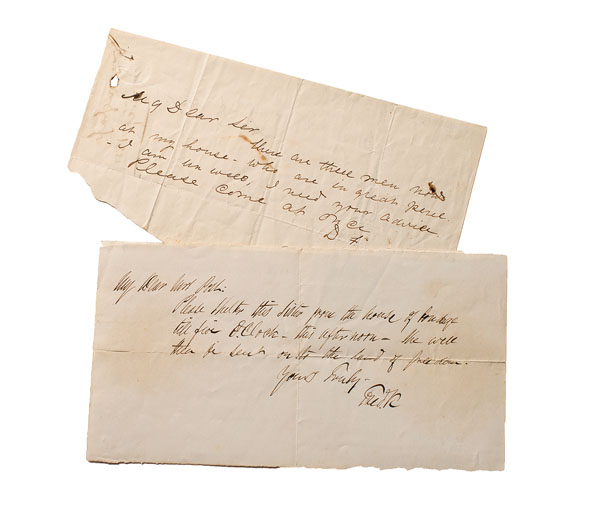 My Dear Ser
there are three men now
at my house - who are in great peril.
- I am un well, I need your advice
Please come at once
D. F.
My Dear Mrs Post:
Please shelter this Sister from the house of bondage
till five O.Clock - this afternoon - She will
then be sent on to the land of freedom.
Yours Truly -
Fredk